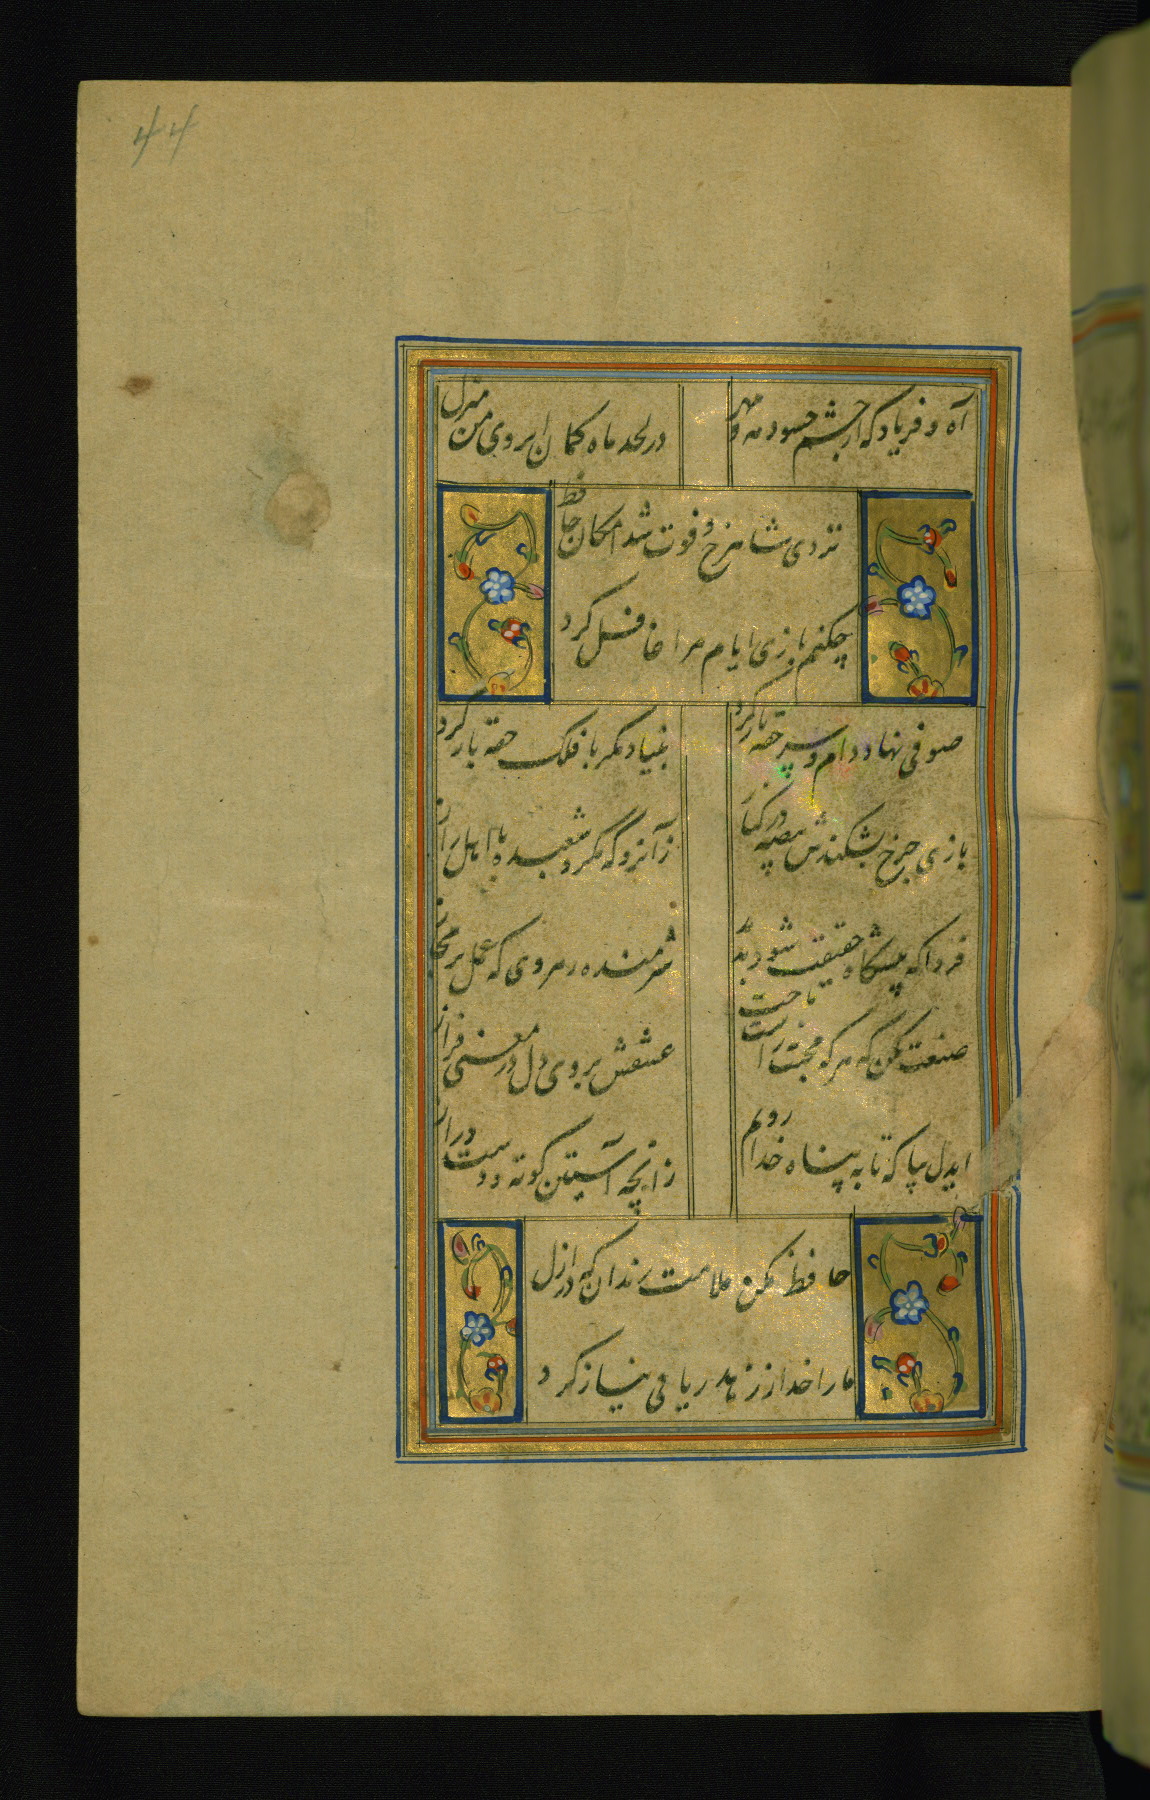 44
آه و فریاد که از چشم حسود مه و مهر
در لحد ماه کمان ابروی من منزل
نزدی شاهرخ و فوت شد امکان حافظ
چکنم بازی ایام مرا غافل کرد
صوفی نهاد دام و سر حقه باز کرد
بنیاد مکر با فلک حقه باز کرد
بازی چرخ بشکندش بیضه در کلاه
زانرو که مکر و شعبده با اهل راز
فردا که پیشگاه حقیقت شود پدید
شرمنده رهروی که عمل بر مجاز
صنعت مکن که هر که محبت نه راست باخت
عشقش بروی دل در معنی فراز
ایدل بیا که تا به پناه خدا رویم
زانچه آستین کوته و دست دراز
حافظ مکن ملامت رندان که در ازل
ما را خدا از زهد ریا بی نیاز کرد